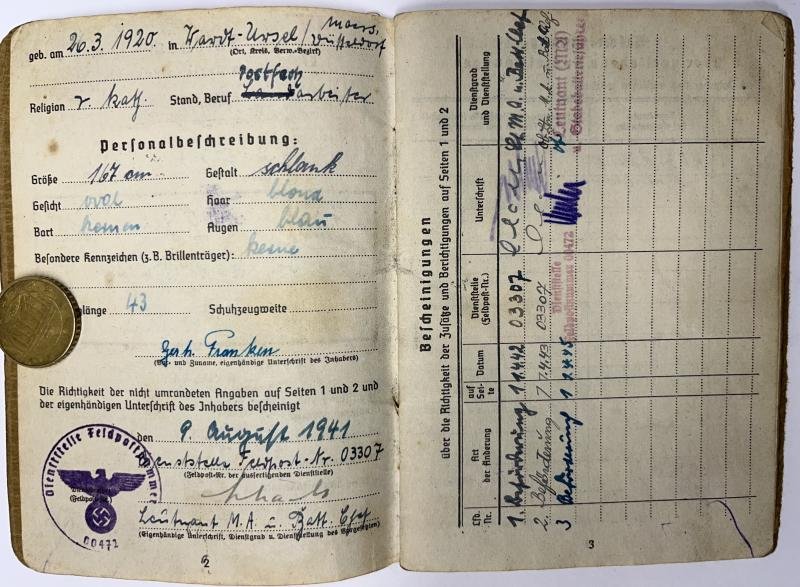 geb. am 26.3.1920. in Hardt-Ursel/ Moers, Düsseldorf
(Ort, Kreis, Verw.-Bezirk)
Religion r. kath. Stand, Beruf arbeiter
Personalbeschreibung:
Größe 167 cm Gestalt schlank
Gesicht oval Haar blond
Bart keinen Augen blau
Besondere Kennzeichen (z.B. Brillenträger): keine
länge 43 Schuhzeugweite
Franken
(Vor- und Zuname, eigenhändige Unterschrift des Inhabers)
Die Richtigkeit der nicht umrandeten Angaben auf Seiten 1 und 2 und
der eigenhändigen Unterschrift des Inhabers bescheinigt
den 9. August 1941
Dienststelle Feldpost-Nr. 03307
(Feldpost-Nr. der ausfertigenden Dienststelle)
Leutnant M.A. u. Batt. Chef
(Eigenhändige Unterschrift, Dienstgrad u. Dienststellung des Vorgesetzten)
Dienststelle Feldpostnummer
00472
2
Bescheinigungen
über die Richtigkeit der Zusätze und Berichtigungen auf Seiten 1 und 2
Lfd. Nr. Art der Änderung auf Seite Datum Dienststelle (Feldpost-Nr.) Unterschrift Dienstgrad und Dienststellung
1. Beförderung 1 1.4.42 03307 Lt. M.A. u. Batt. Chef
2. Beförderung 1 1.4.43 03307
3 Beförderung 1 1.4.45 Dienststelle Feldpostnummer 00472 Leutnant (MA)
3